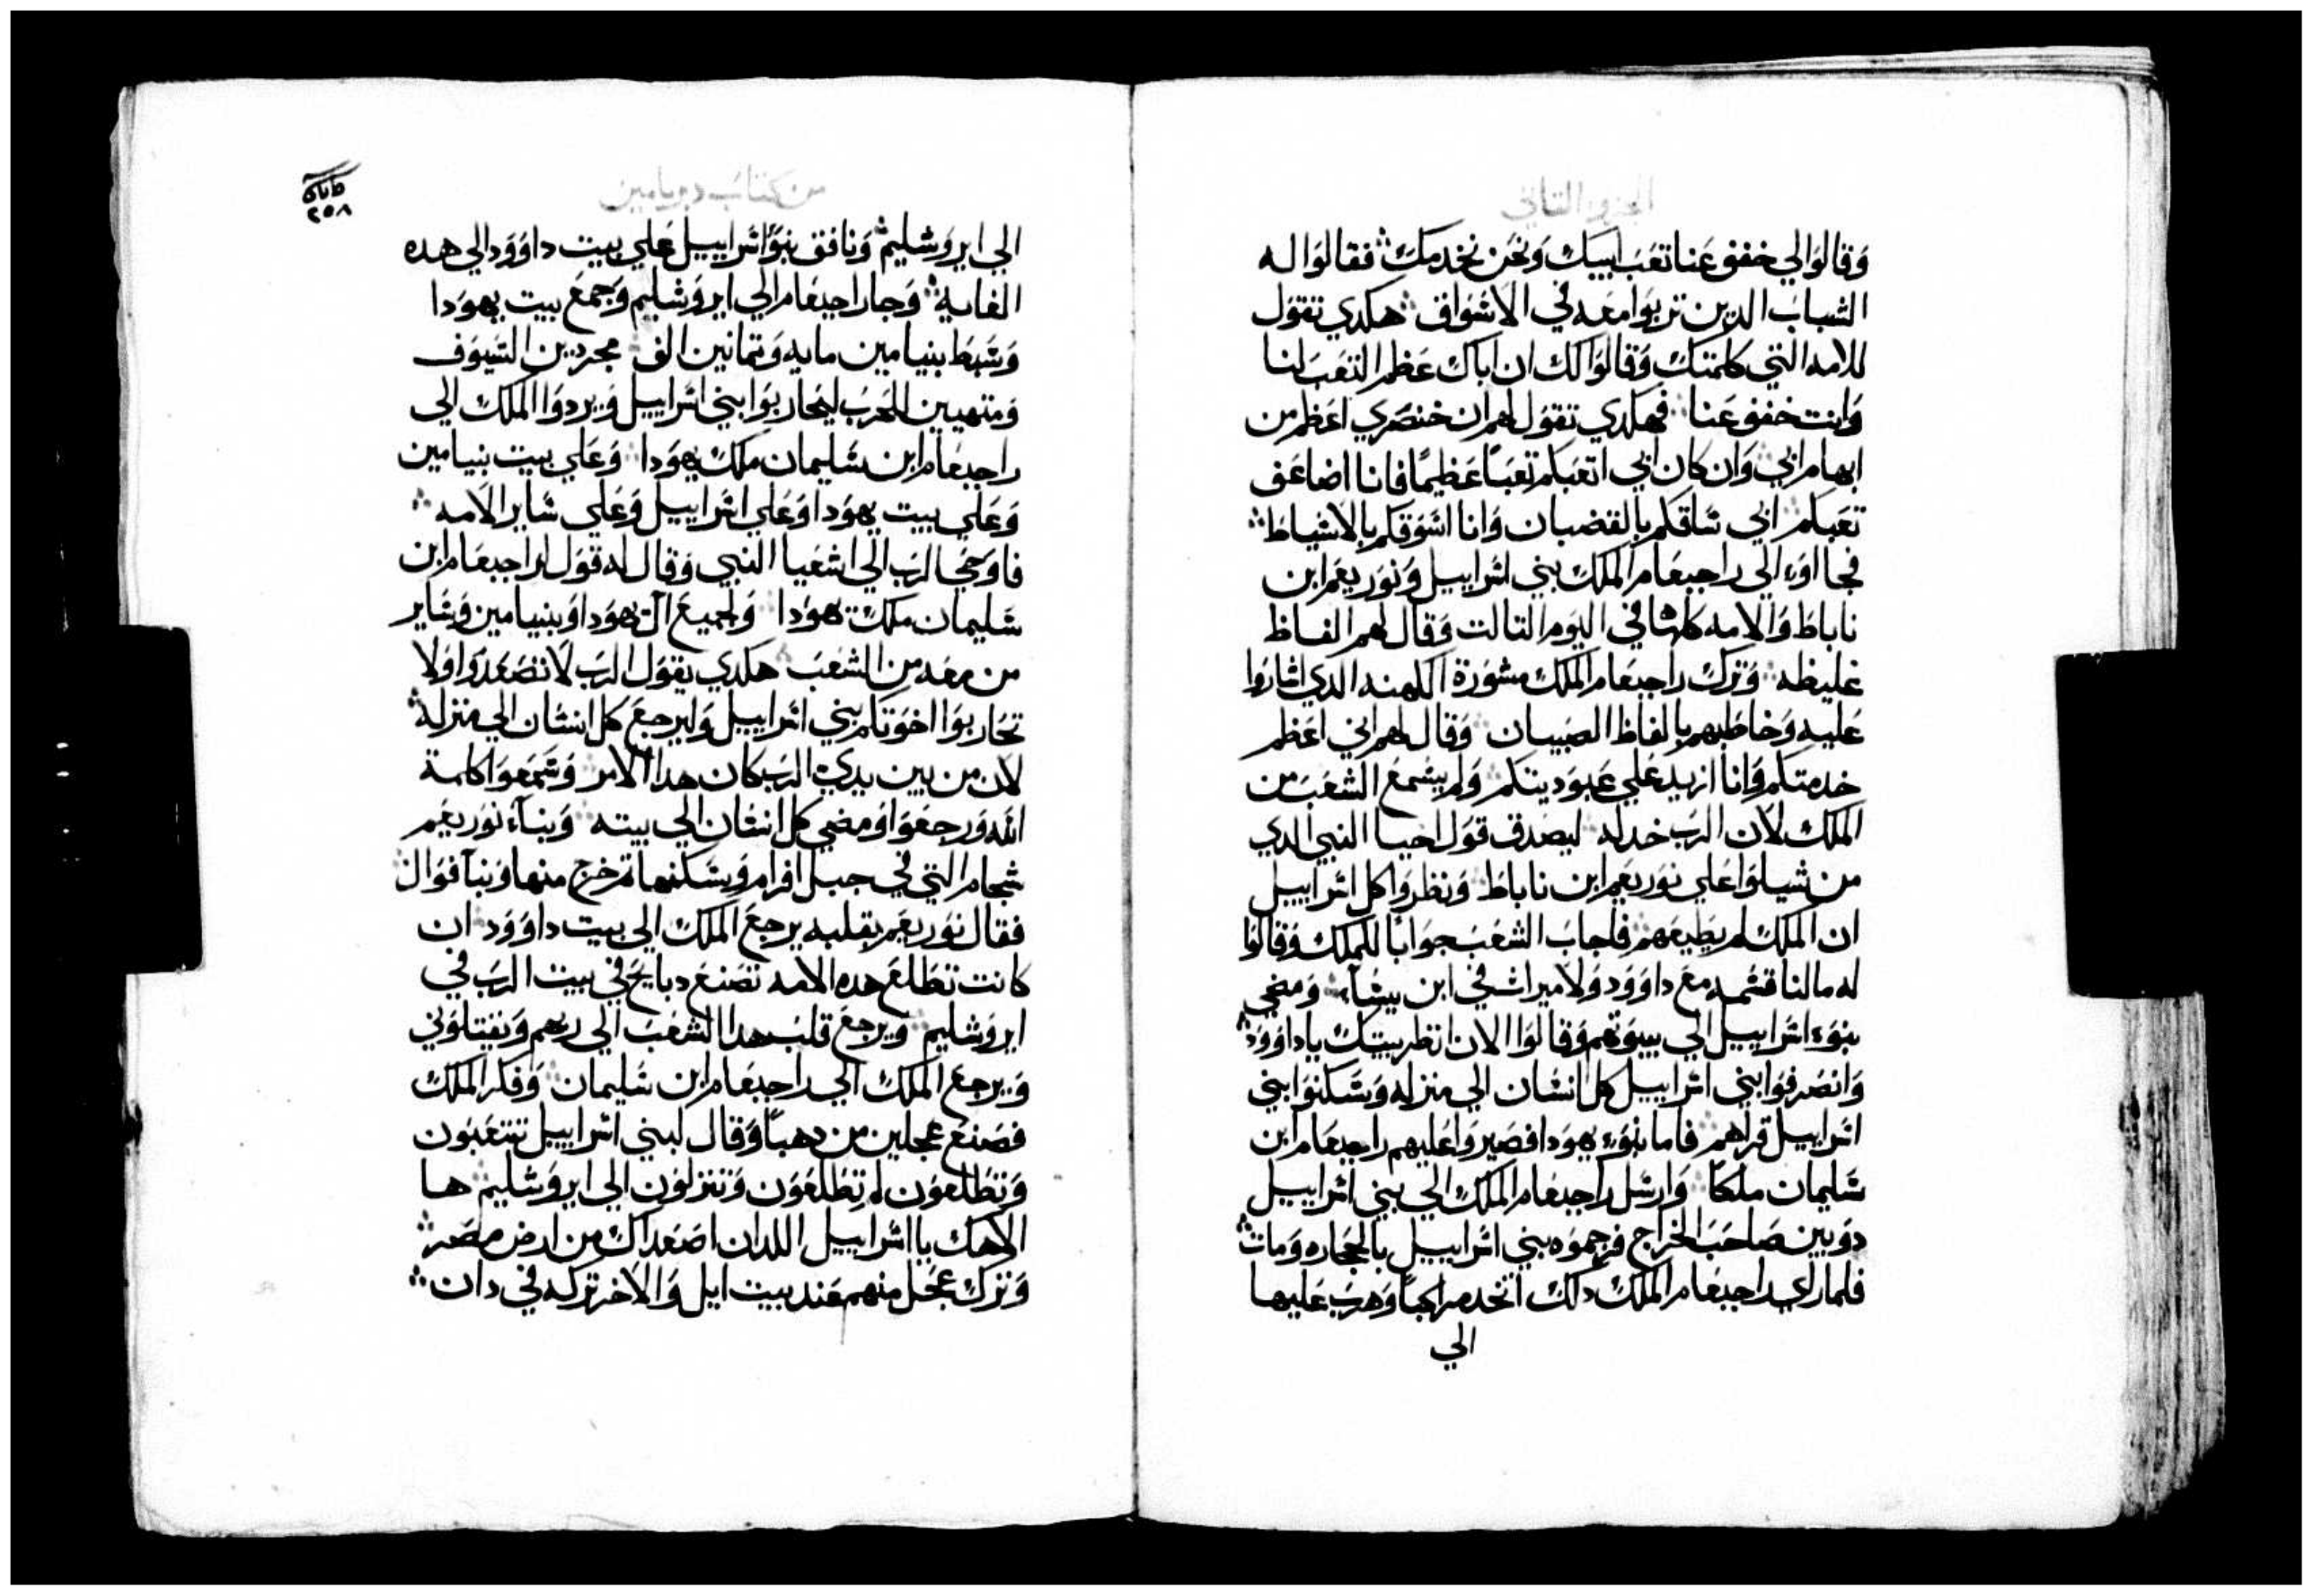 الجزو التاني
وقالوا لي خفف عنا تعب ابيك ونحن نخدمك فقالوا له
الشباب الدين تربوا معه في الاسواق هكدي تقول
للامه التي كلمتك وقالوا لك ان اباك عظم التعب لنا
وانت خفف عنا فهكدي تقول لهم ان خنصري اعظم من
ابهام ابي وان كان ابي اتعبكم تعبًا عظيمًا فانا اضاعف
تعبكم ابي ساقكم بالقضبان وانا اسوقكم بالاسياط
فجااوء الي راجبعام الملك بني اسراييل ونوربعم ابن
ناباط والامه كلها في اليوم التالت وقال لهم الفاظ
غليظه وترك راجبعام الملك مشورة الكهنه الدي اشاروا
عليه وخاطبهم بالفاظ الصبيان وقال لهم اني اعظم
خدمتكم وانا ازيد علي عبوديتكم ولم يسمع الشعب من
الملك لان الرب خدله ليصدق قول احيا النبي الدي
من شيلوا علي نوربعم ابن ناباط ونظروا كل اسراييل
ان الملك لم يطيعهم فاجاب الشعب جوابًا للملك وقالوا
له مالنا قسمه مع داوود ولا ميراث في ابن يسآء ومضي
بنوء اسراييل الي بيوتهم وقالوا الان انظر بيتك ياداوود
وانصرفوا بني اسراييل كل انسان الي منزله وسكنوا بني
اسراييل قراهم فاما بنوء يهودا فصيروا عليهم راجبعام ابن
سليمان ملكًا وارسل راجبعام الملك الي بني اسراييل
دوبين صاحب الخراج فرجموه بني اسراييل بالحجاره ومات
فلما راي راجبعام الملك دلك اتخد مراكبًا وهرب عليها
الي
من كتاب دبريامين
٢٥٨
الي ايروشليم ونافق بنوء اسراييل علي بيت داوود الي هده
الغايه وجا راجبعام الي ايروشليم وجمع بيت يهودا
وسبط بنيامين مايه وتمانين الف مجردين السيوف
ومتهيين للحرب ليحاربوا بني اسراييل ويردوا الملك الي
راجبعام ابن سليمان ملك يهودا وعلي بيت بنيامين
وعلي بيت يهودا وعلي اسراييل وعلي ساير الامه
فاوحي الرب الي اشعيا النبي وقال له قول لراجبعام ابن
سليمان ملك يهودا ولجميع ال يهودا وبنيامين وساير
من معه من الشعب هكدي يقول الرب لا تصعدوا ولا
تحاربوا اخوتكم بني اسراييل وليرجع كل انسان الي منزله
لان من بين يدي الرب كان هدا الامر وسمعوا كلمة
الله ورجعوا ومضي كل انسان الي بيته وبناء نوربعم
شجام التي في جبل افرام وسكنها تم خرج منها وبنا فنوال
فقال نوربعم بقلبه يرجع الملك الي بيت داوود ان
كانت تطلع هده الامه تصنع دبايح في بيت الرب في
ايروشليم ويرجع قلب هدا الشعب الي ربهم ويقتلوني
ويرجع الملك الي راجبعام ابن سليمان وفكر الملك
فصنع عجلين من دهبًا وقال لبني اسراييل تتعبون
وتطلعون لم تطلعون وتنزلون الي ايروشليم ها
الاهك يا اسراييل اللدان اصعداك من ارض مصر
وترك عجل منهم عند بيت ايل والاخر تركه في دان